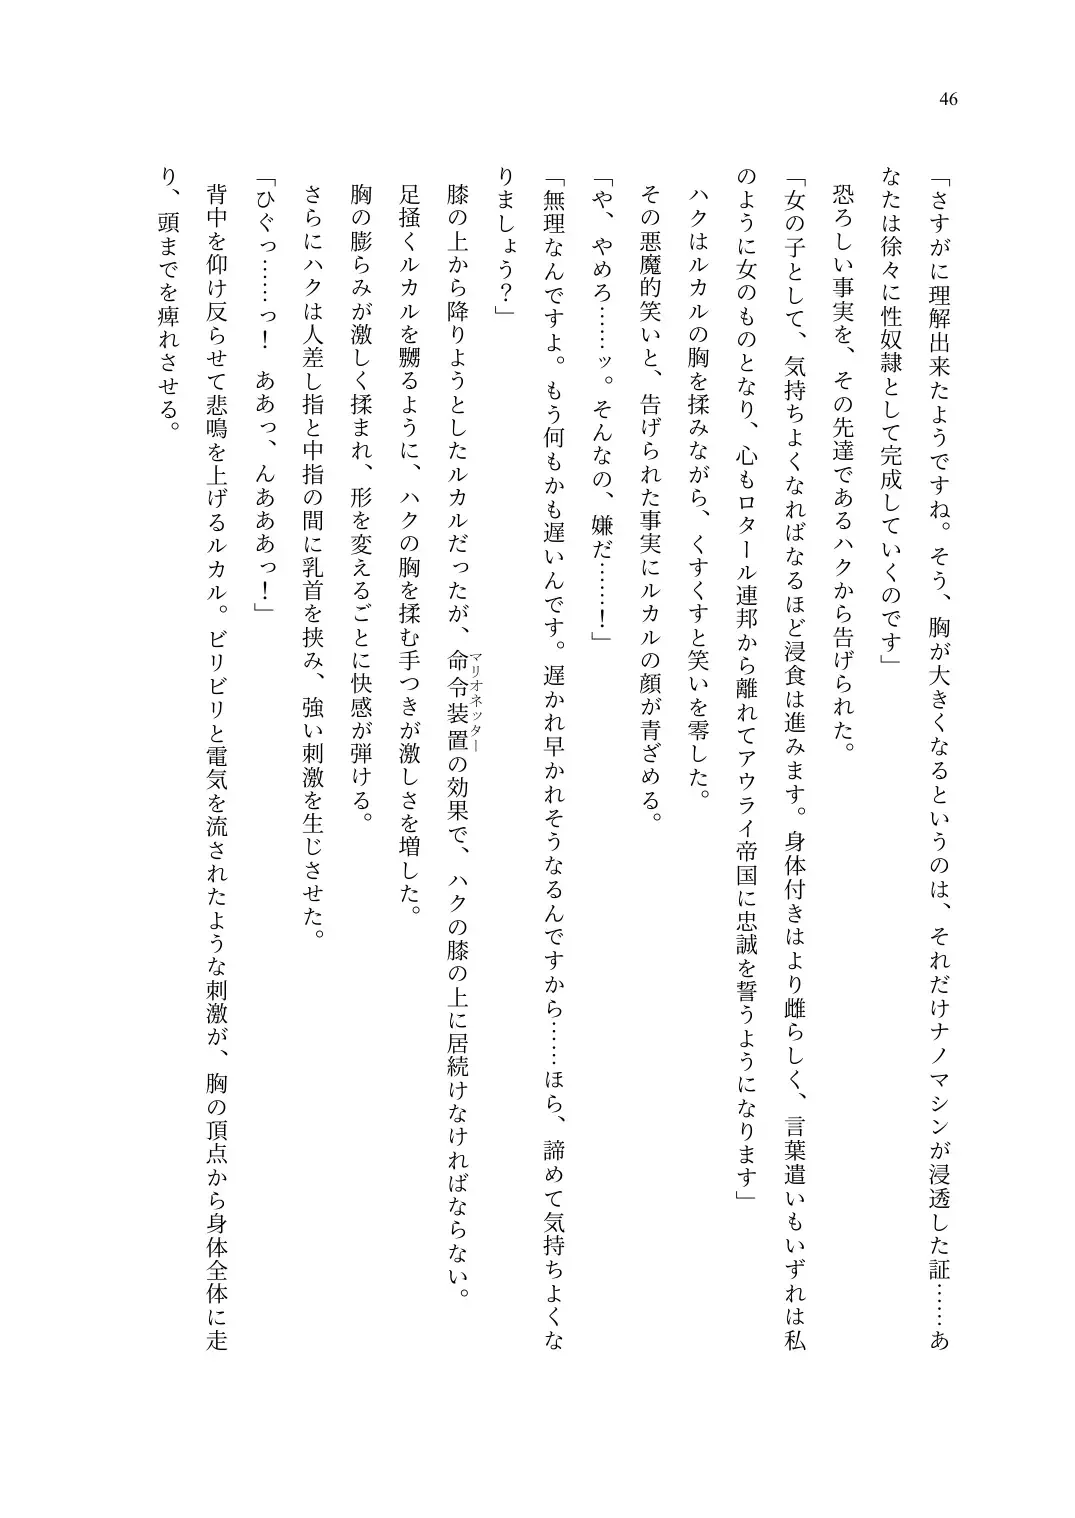 46
「さすがに理解出来たようですね。そう、胸が大きくなるというのは、それだけナノマシンが浸透した証……あ
なたは徐々に性奴隷として完成していくのです」
恐ろしい事実を、その先達であるハクから告げられた。
「女の子として、気持ちよくなればなるほど浸食は進みます。身体付きはより雌らしく、言葉遣いもいずれは私
のように女のものとなり、心もロタール連邦から離れてアウライ帝国に忠誠を誓うようになります」
ハクはルカルの胸を揉みながら、くすくすと笑いを零した。
その悪魔的笑いと、告げられた事実にルカルの顔が青ざめる。
「や、やめろ……ッ。そんなの、嫌だ……！」
「無理なんですよ。もう何もかも遅いんです。遅かれ早かれそうなるんですから……ほら、諦めて気持ちよくな
りましょう？」
膝の上から降りようとしたルカルだったが、命令装置の効果で、ハクの膝の上に居続けなければならない。
マリオネッター
足掻くルカルを嬲るように、ハクの胸を揉む手つきが激しさを増した。
胸の膨らみが激しく揉まれ、形を変えるごとに快感が弾ける。
さらにハクは人差し指と中指の間に乳首を挟み、強い刺激を生じさせた。
「ひぐっ……っ！　ああっ、んあああっ！」
背中を仰け反らせて悲鳴を上げるルカル。ビリビリと電気を流されたような刺激が、胸の頂点から身体全体に走
り、頭までを痺れさせる。